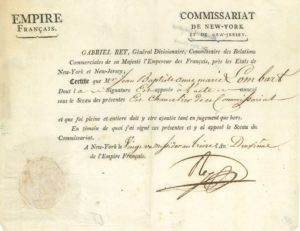 EMPIRE
Français.
COMMISSARIAT
DE NEW-YORK
ET DE NEW-JERSEY.
GABRIEL REY, Général Divisionaire, Commissaire des Relations
Commerciales de sa Majesté l'Empereur des Français, près les Etats de
New-York et New-Jersey;
Certifie que Mr. Jean Baptiste aimé marie Lombart
dont la signature Est apposée à l'acte annexé
sous le Sceau des présentes Est Chancelier de ce Commissariat
et que foi pleine et entiere doit y etre ajoutée tant en jugement que hors.
En témoin de quoi j'ai signé ces présentes et y ai apposé le Sceau du
Commissariat.
A New-York le messidor an treize
de l'Empire Français.
Rey